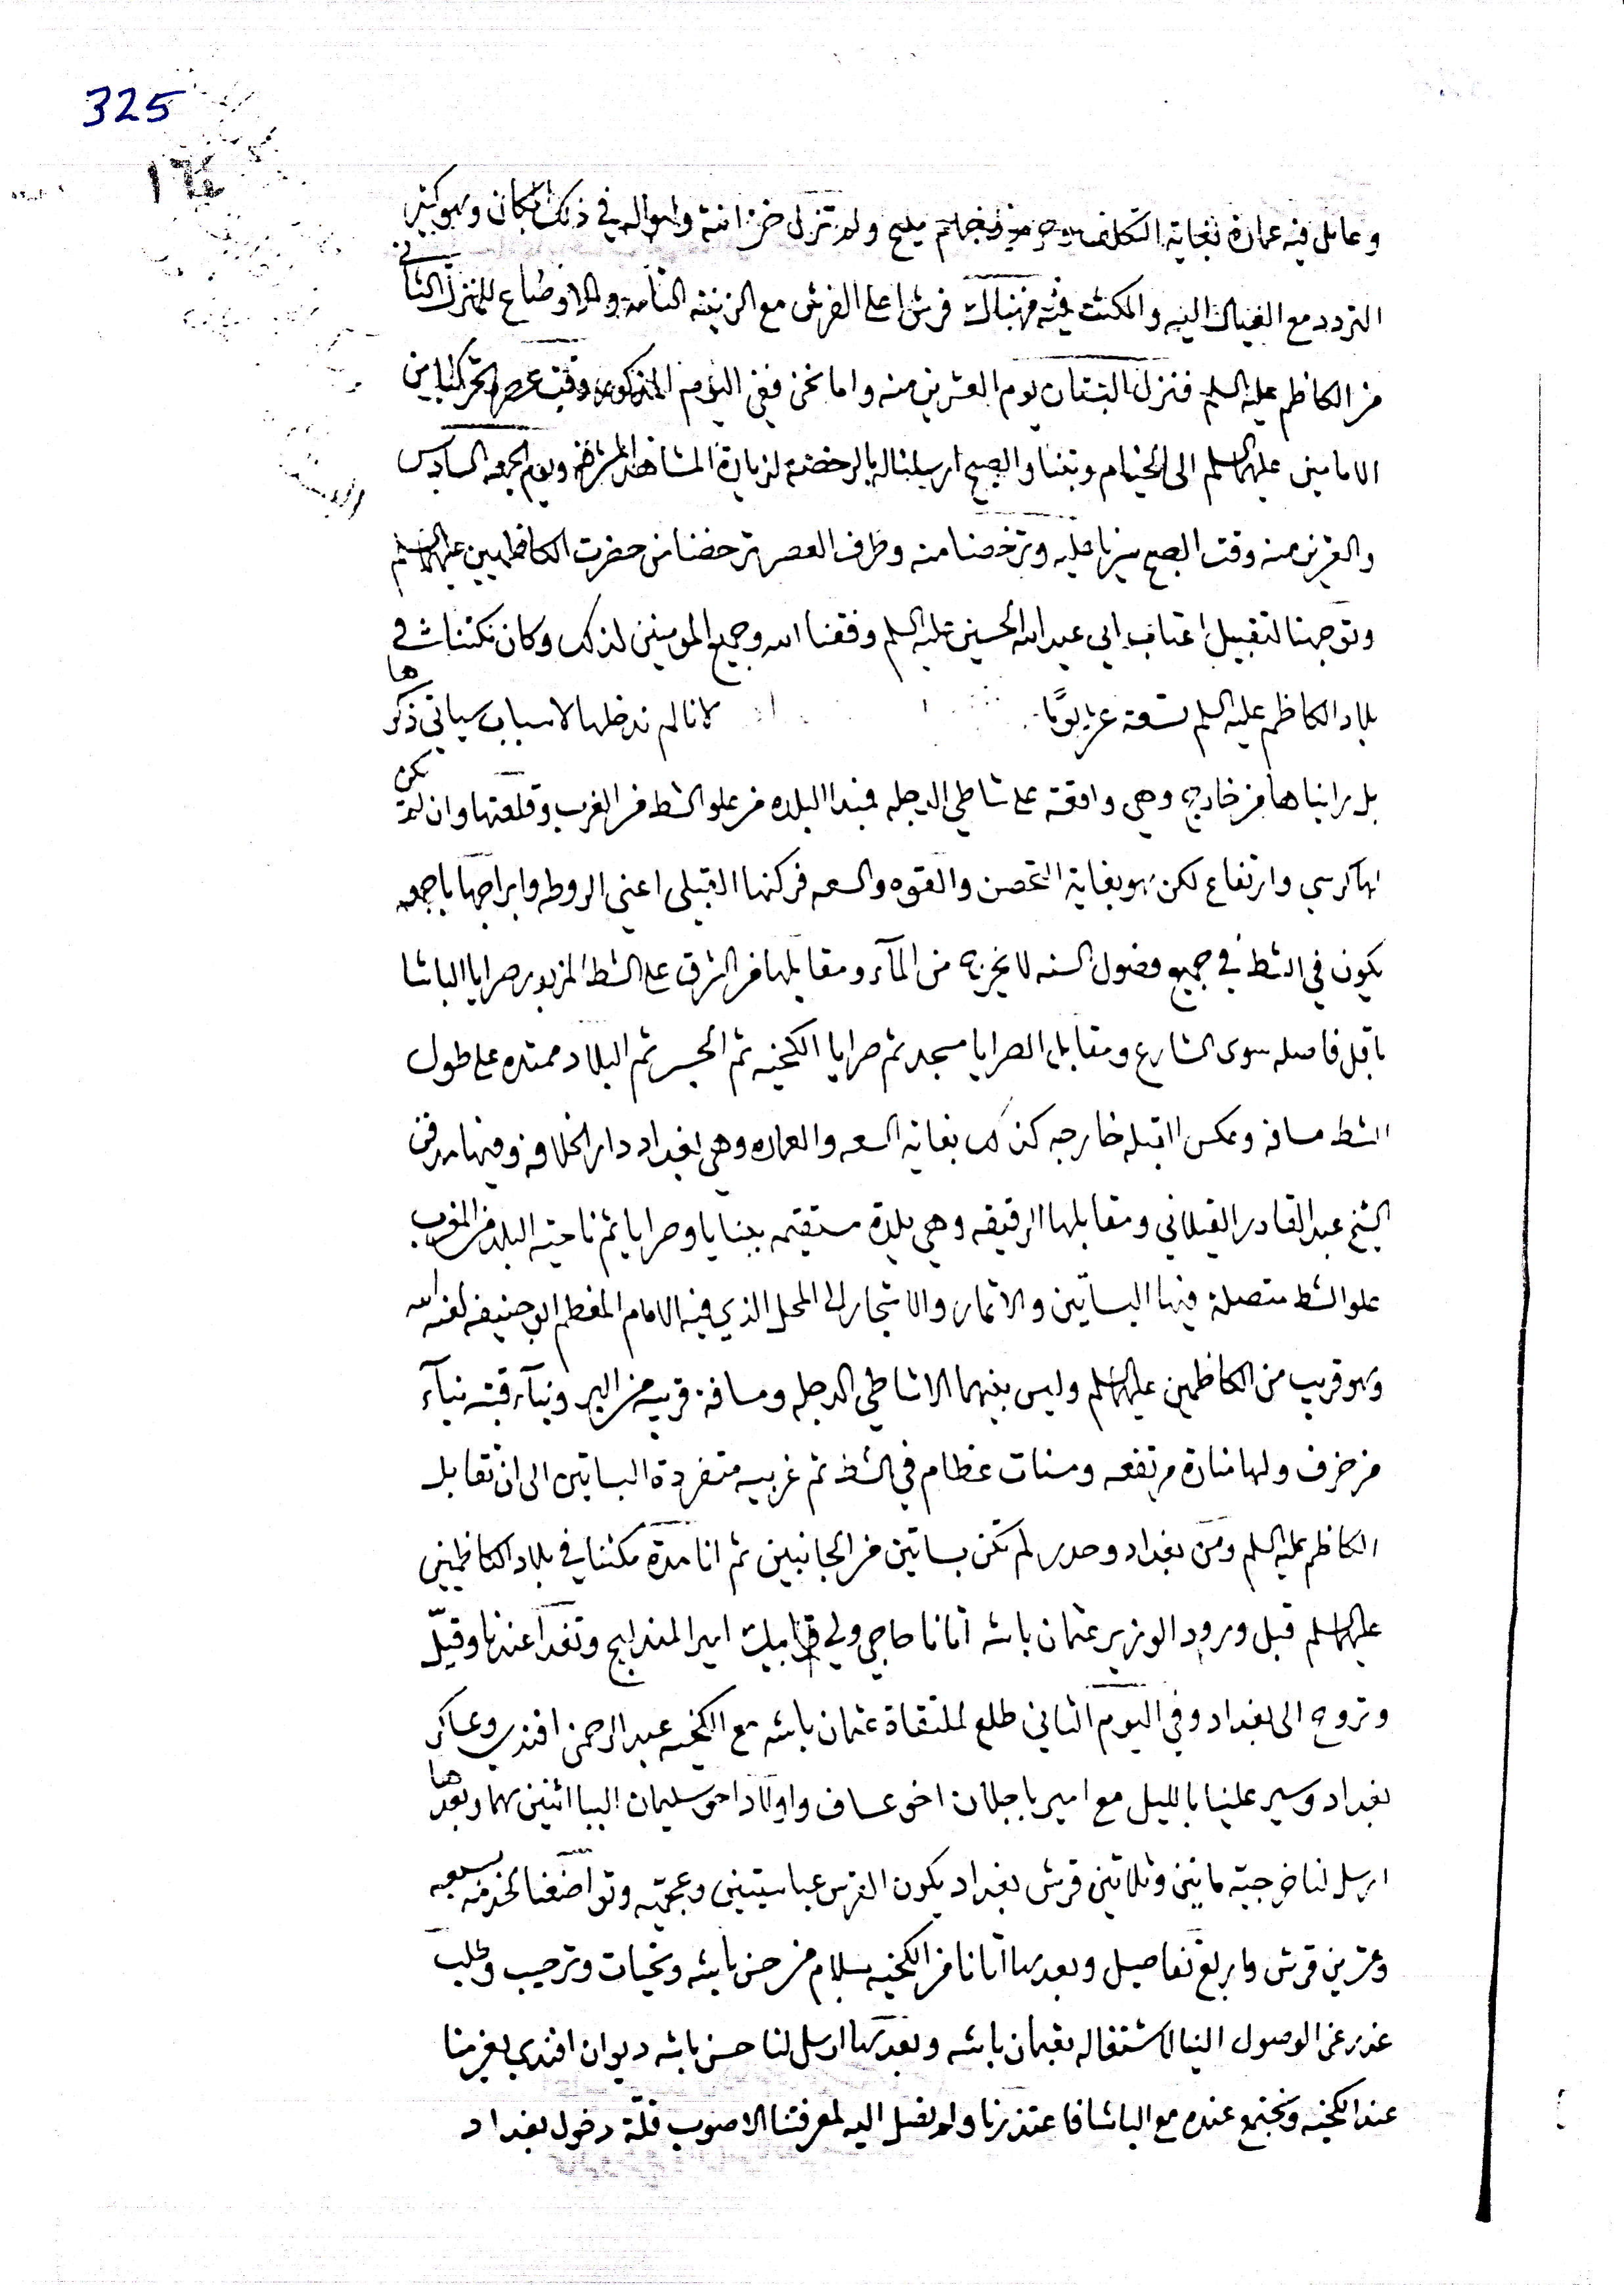 325
١٦٤
وعامل فيه عمارة بغاية التكلف مليح ولم تزل خزانته وامواله في ذلك المكان وهو كثير
التردد مع العيال اليه والمكث فيه فهناك فرش اعلى الفرش مع الزينه التامه والاوضاع للمنزل الثاني
من الكاظم عليه السلم فنزل البستان يوم العشرين منه واما نحن ففي اليوم المذكور وقت عصر تحركنا من
الامامين عليهما السلم الى الخيام وبتنا والصبح ارسلنا له بالرخصة لزيارة المشاهد المشرفه ويوم الجمعه السادس
والعشرين منه وقت الصبح سيرنا عليه وترخصنا منه وطرف العصر ترخصنا من حضرت الكاظميين عليهما السلم
وتوجهنا لتقبيل اعتاب ابي عبدالله الحسين عليه السلم وفقنا الله وجميع المومنين لذلك وكان مكثنا في
بلاد الكاظم عليه السلم تسعة عشر يومًا لانا لم ندخلها لاسباب سياتي ذكرها
بل رايناها من خارج وهي واقعة على شاطي الدجله فمبدا البلاد من علو الشط من الغرب وقلعتها وان لم تكن
لها كرسي وارتفاع لكن هو بغاية التحصن والقوه والسعه فركنها القبلي اعني الروطه وابراجها باجمعه
يكون في الشط في جميع فصول السنه لا يخرج من المآء ومقابلها من الشرق على الشط المزبور صرايا الباشا
باقل فاصله سوى الشارع ومقابل الصرايا مسجد ثم صرايا الكخيه ثم الجسر ثم البلاد ممتده على طول
الشط مسافه وعكس القبله خارجه كذلك بغايه السعه والعماره وهي بغداد دار الخلافه وفيها مدفن
الشيخ عبد القادر القيلاني ومقابلها الرقيقه وهي بلدة مستقيمه ببنايا وصرايا ثم ناحيته البلد من المغرب
علو الشط متصلة فيها البساتين والاثمار والاشجار الى المحل الذي فيه الامام المعظم ابو حنيفه لعنه الله
وهو قريب من الكاظمين عليهما السلم وليس بينهما الا شاطي الدجله ومسافة قريبه من البر وبنآء قبته بنآء
مزخرف ولها منارة مرتفعه ومسنات عظام في الشط ثم غربيه متفردة البساتين الى ان تقابل
الكاظم عليه السلم ومن بغداد وحدر لم تكن بساتين من الجانبين ثم انا مدة مكثنا في بلاد الكاظميين
عليهما السلم قبل ورود الوزير عثمان باشه اتانا حاجي ولي بيك امير المندليج وتغدا عندنا وقيّل
وتروح الى بغداد وفي اليوم الثاني طلع لملتقاة عثمان باشه مع الكخيه عبد الرحمن افندي وعساكر
بغداد وسير علينا بالليل مع امير باجلان اخو عساف واولاد اخو سليمان الببا اثنين هما وبعدها
ارسل لنا خرجيته مايتين وثلاثين قرش بغداد يكون القرش عباسيتين وعجميّه وتواضعنا لخدمته بسبعه
وعشرين قرش واربع تفاصيل وبعدها اتانا من الكخيه بسلام من حسن باشه وتحيات وترحيب وطلب
عذر عن الوصول الينا لاشتغاله بعثمان باشه وبعدها ارسل لنا حسن باشه ديوان افندي يعزمنا
عند الكخيه ونجتمع عنده مع الباشا فاعتذرنا ولم نصل اليه لمعرفتنا الاصوب قلّة دخول بغداد